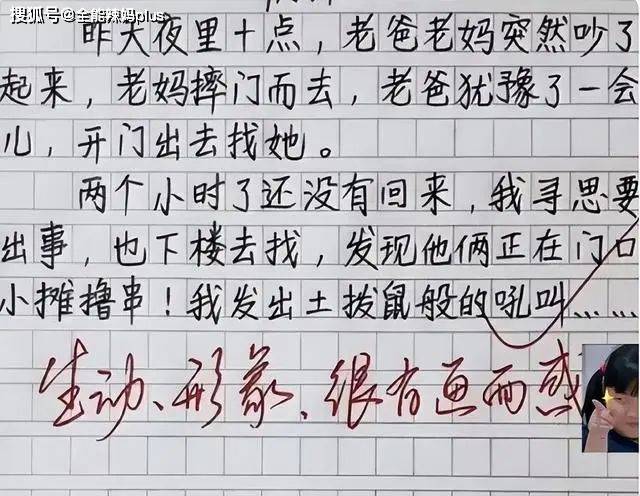 搜狐号@全能辣妈plus
昨天夜里十点，老爸老妈突然吵了
起来，老妈摔门而去，老爸犹豫了一会
儿，开门出去找她。
两个小时了还没有回来，我寻思要
出事，也下楼去找，发现他俩正在门口
小摊撸串！我发出土拨鼠般的吼叫……
生动、形象、很有画面感